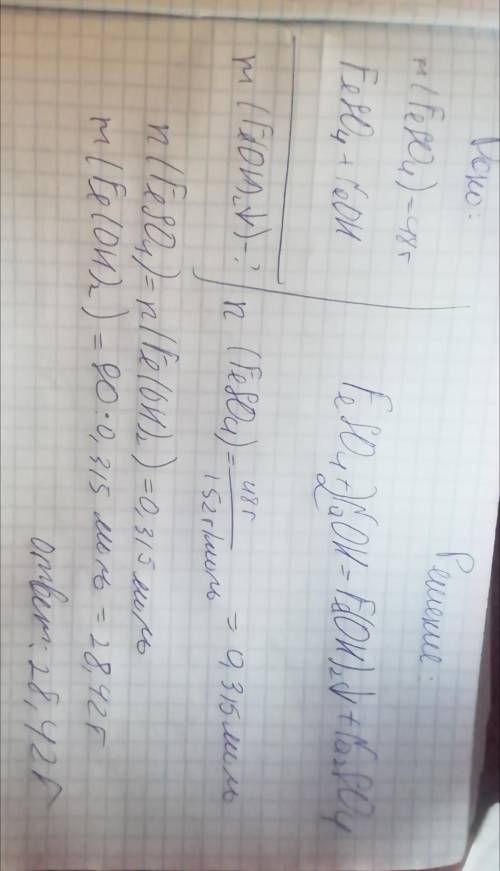 Дано:
m(FeSO₄)=48г
FeSO₄+NaOH
m(Fe(OH)₂↓)-?
Решение:
FeSO₄+2NaOH=Fe(OH)₂↓+Na₂SO₄
n (FeSO₄)=48г/152г/моль =0,315моль
n(FeSO₄)=n(Fe(OH)₂)=0,315моль
m(Fe(OH)₂)=90·0,315 моль=28,42г
ответ: 28,42г